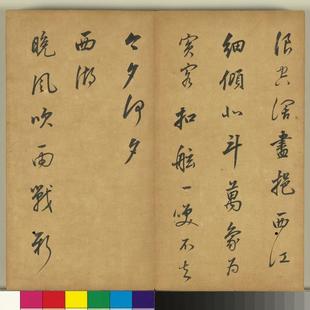 浪空闊盡挹西江
細傾北斗萬象為
賓客扣舷一笑不知
今夕何夕
西湖
晚風吹雨戰新